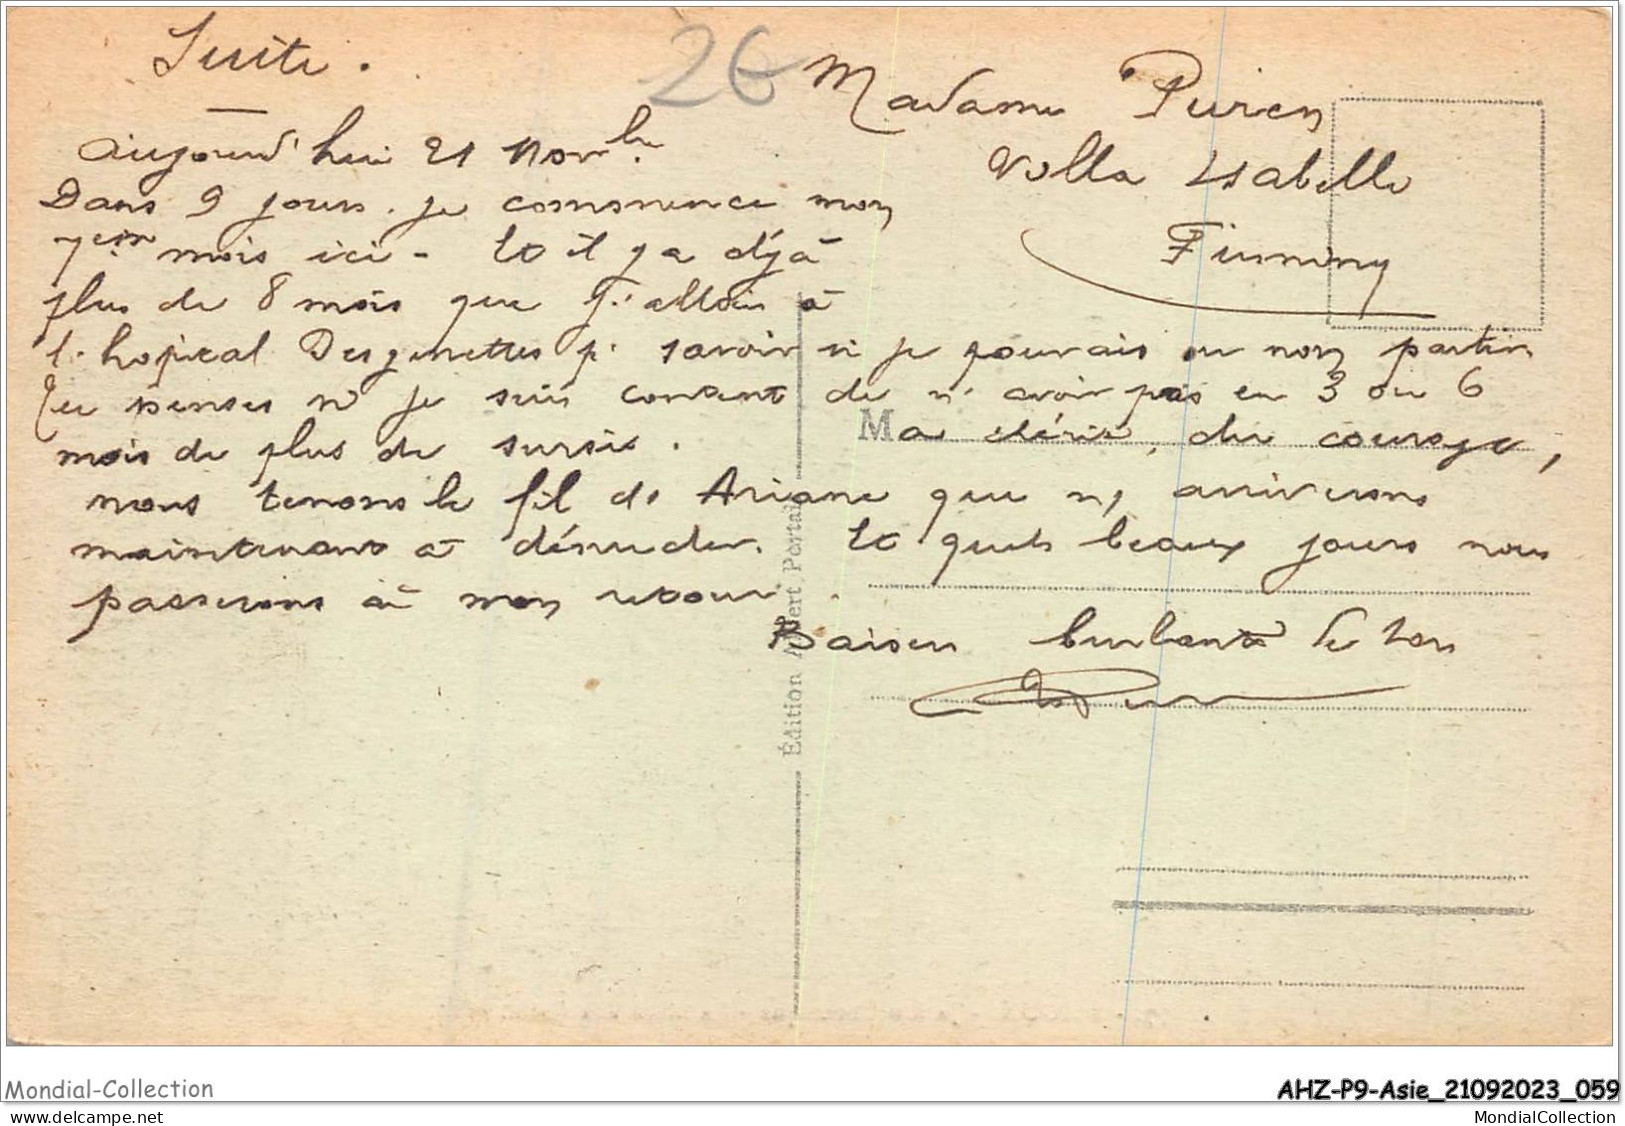 Suite.
26
Madame Puren
Villa Isabelle
Firminy
Aujourd'hui 21 Novbre
Dans 9 jours. je commence mon
7eme mois ici - Et il y a déjà
plus de 8 mois que j'allais à
l'hopital Desgenettes pr savoir si je pouvais ou non partir
Tu penses si je suis content de n'avoir pas eu 3 ou 6
mois de plus de sursis.
Ma chérie, du courage,
nous tenons le fil d'Ariane que ns arriverons
maintenant à dénuder. Et quels beaux jours nous
passerons à mon retour.
Baisers brulants le ton
M
Édition Albert Portail
Mondial-Collection
AHZ-P9-Asie_21092023_059
www.delcampe.net
MondialCollection